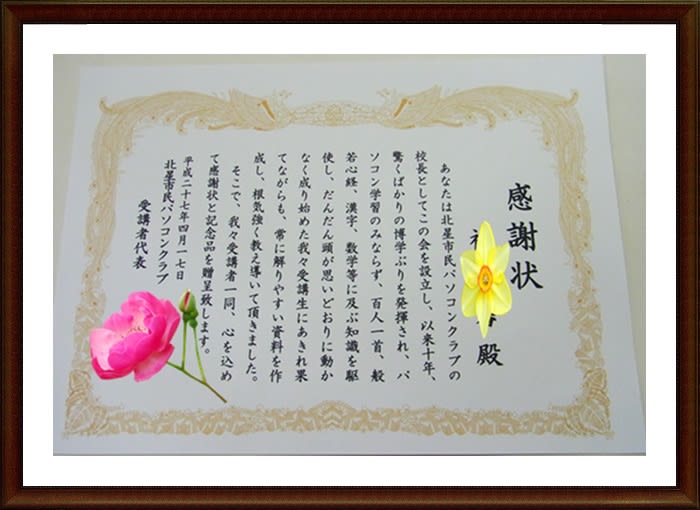 感謝状
殿
あなたは北星市民パソコンクラブの
校長としてこの会を設立し、以来十年、
驚くばかりの博学ぶりを発揮され、パ
ソコン学習のみならず、百人一首、般
若心経、漢字、数学等に及ぶ知識を駆
使し、だんだん頭が思いどおりに動か
なく成り始めた我々受講生にあきれ果
てながらも、常に解りやすい資料を作
成し、根気強く教え導いて頂きました。
そこで、我々受講者一同、心を込め
て感謝状と記念品を贈呈致します。
平成二十七年四月一七日
北星市民パソコンクラブ
受講者代表